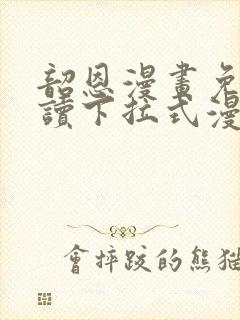 韶恩漫畫免
讀下拉式漫
會摔跤的熊猫